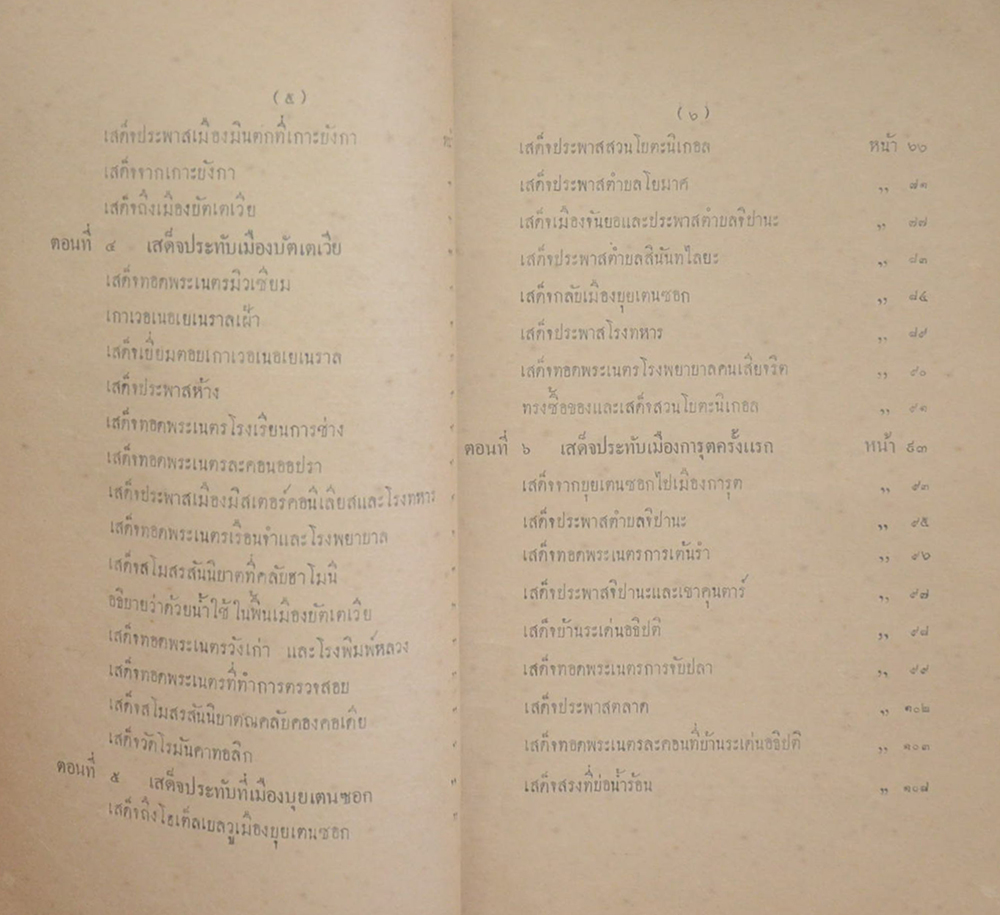 (๕)
เสด็จประพาสเมืองมินตกที่เกาะบังกา
เสด็จจากเกาะบังกา
เสด็จถึงเมืองบัตเตเวีย
ตอนที่ ๔ เสด็จประทับเมืองบัตเตเวีย
เสด็จทอดพระเนตรมิวเซียม
เกาเวอเนอเยเนราลเฝ้า
เสด็จเยี่ยมตอบเกาเวอเนอเยเนราล
เสด็จประพาสห้าง
เสด็จทอดพระเนตรโรงเรียนการช่าง
เสด็จทอดพระเนตรละคอนออปรา
เสด็จประพาสเมืองมิสเตอร์คอนิเลียสและโรงทหาร
เสด็จทอดพระเนตรเรือนจำและโรงพยาบาล
เสด็จสโมสรสันนิบาตที่คลับฮาโมนี
อธิบายว่าด้วยน้ำใช้ในพื้นเมืองบัตเตเวีย
เสด็จทอดพระเนตรวังเก่า และโรงพิมพ์หลวง
เสด็จทอดพระเนตรที่ทำการตรวจสอบ
เสด็จสโมสรสันนิบาตณคลับคองคอเดีย
เสด็จวัดโรมันคาทอลิก
ตอนที่ ๕ เสด็จประทับที่เมืองบุยเตนซอก
เสด็จถึงโฮเต็ลเบลวูเมืองบุยเตนซอก
(๖)
เสด็จประพาสสวนโบตะนิเกอล หน้า ๖๖
เสด็จประพาสตำบลโยมาศ ,, ๗๑
เสด็จเมืองจันยอและประพาสตำบลจิปานะ ,, ๗๗
เสด็จประพาสตำบลสินันทไลยะ ,, ๘๓
เสด็จกลับเมืองบุยเตนซอก ,, ๘๔
เสด็จประพาสโรงทหาร ,, ๘๙
เสด็จทอดพระเนตรโรงพยาบาลคนเสียจริต ,, ๙๐
ทรงซื้อของและเสด็จสวนโบตะนิเกอล ,, ๙๑
ตอนที่ ๖ เสด็จประทับเมืองการุตครั้งแรก หน้า ๙๓
เสด็จจากบุยเตนซอกไปเมืองการุต ,, ๙๓
เสด็จประพาสตำบลจิปานะ ,, ๙๕
เสด็จทอดพระเนตรการเต้นรำ ,, ๙๖
เสด็จประพาสจิปานะและเขาคุนตาร์ ,, ๙๗
เสด็จบ้านระเด่นอธิปติ ,, ๙๘
เสด็จทอดพระเนตรการจับปลา ,, ๙๙
เสด็จประพาสตลาด ,, ๑๐๒
เสด็จทอดพระเนตรละคอนที่บ้านระเด่นอธิปติ ,, ๑๐๓
เสด็จสรงที่บ่อน้ำร้อน ,, ๑๐๗